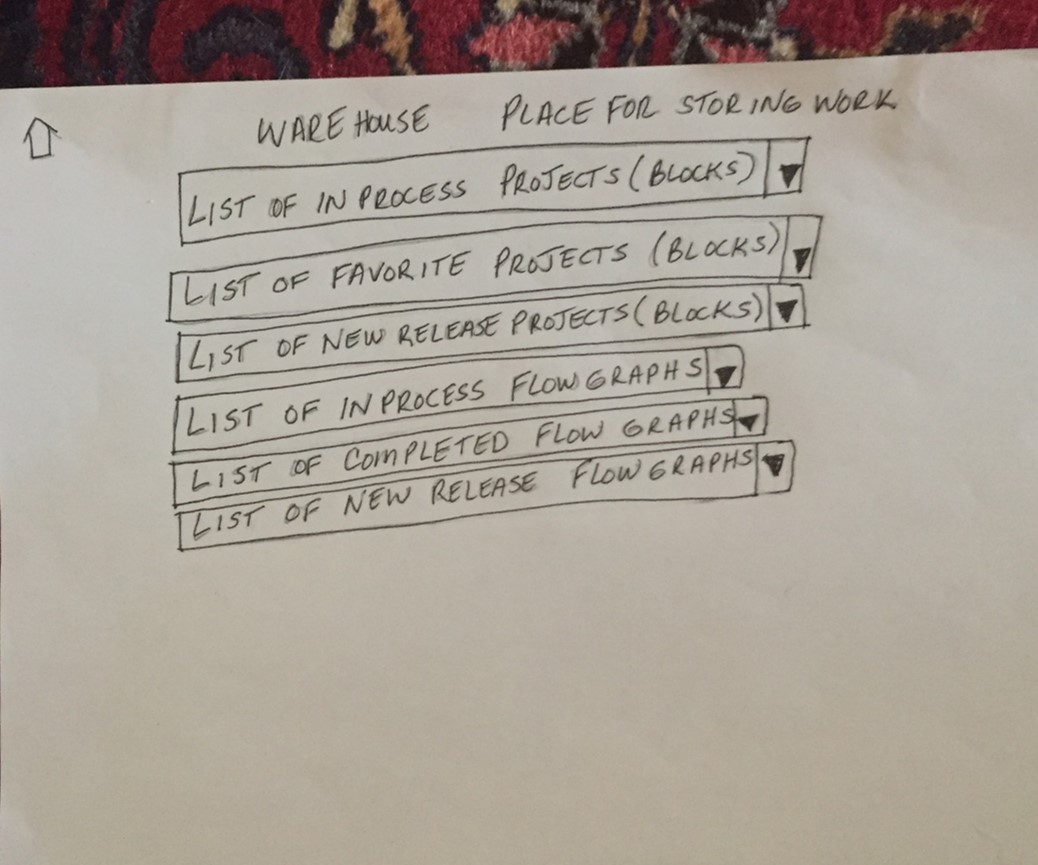 WAREHOUSE PLACE FOR STORING WORK
LIST OF IN PROCESS PROJECTS (BLOCKS)
LIST OF FAVORITE PROJECTS (BLOCKS)
LIST OF NEW RELEASE PROJECTS (BLOCKS)
LIST OF IN PROCESS FLOW GRAPHS
LIST OF COMPLETED FLOW GRAPHS
LIST OF NEW RELEASE FLOW GRAPHS